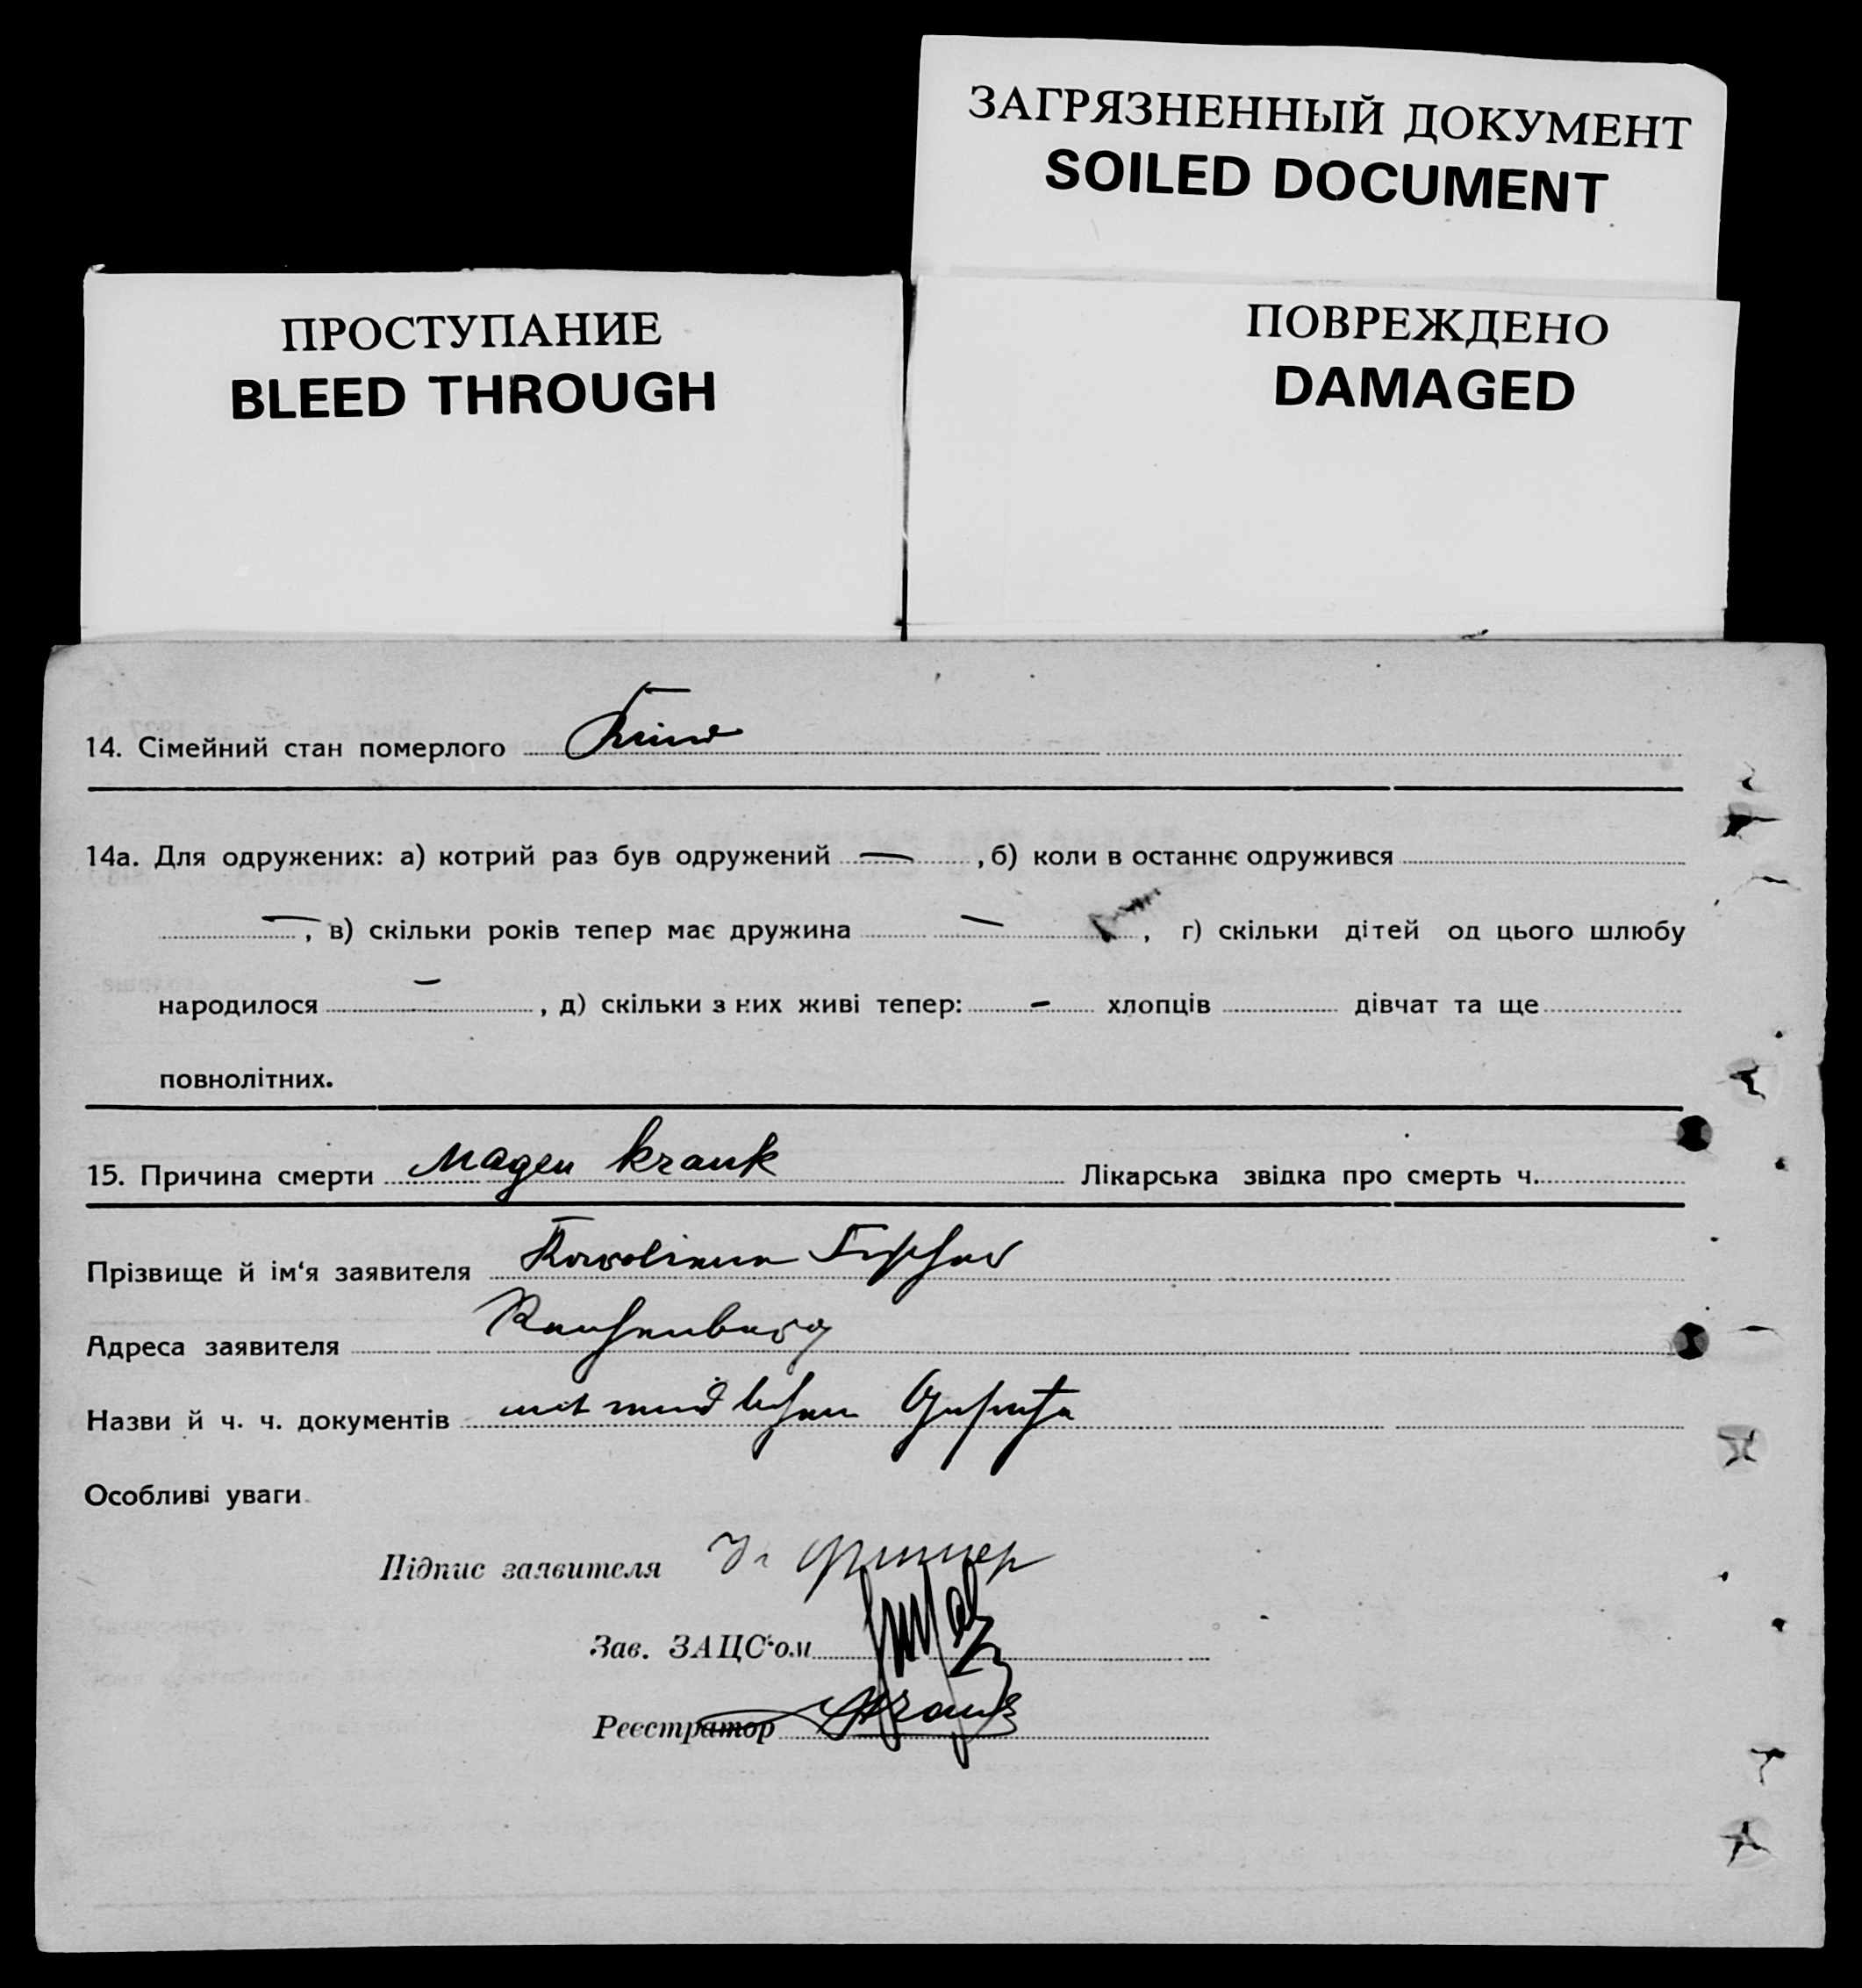 ЗАГРЯЗНЕННЫЙ ДОКУМЕНТ
SOILED DOCUMENT
ПРОСТУПАНИЕ
BLEED THROUGH
ПОВРЕЖДЕНО
DAMAGED
14. Сімейний стан померлого Kind
14а. Для одружених: а) котрий раз був одружений — , б) коли в останнє одружився
— , в) скільки років тепер має дружина — , г) скільки дітей од цього шлюбу
народилося — , д) скільки з них живі тепер: — хлопців дівчат та ще
повнолітних.
15. Причина смерти Magen krank Лікарська звідка про смерть ч.
Прізвище й ім‘я заявителя Karolina Fischer
Адреса заявителя
Назви й ч. ч. документів
Особливі уваги
Підпис заявителя Фишер
Зав. ЗАЦС‘ом
Реєстратор